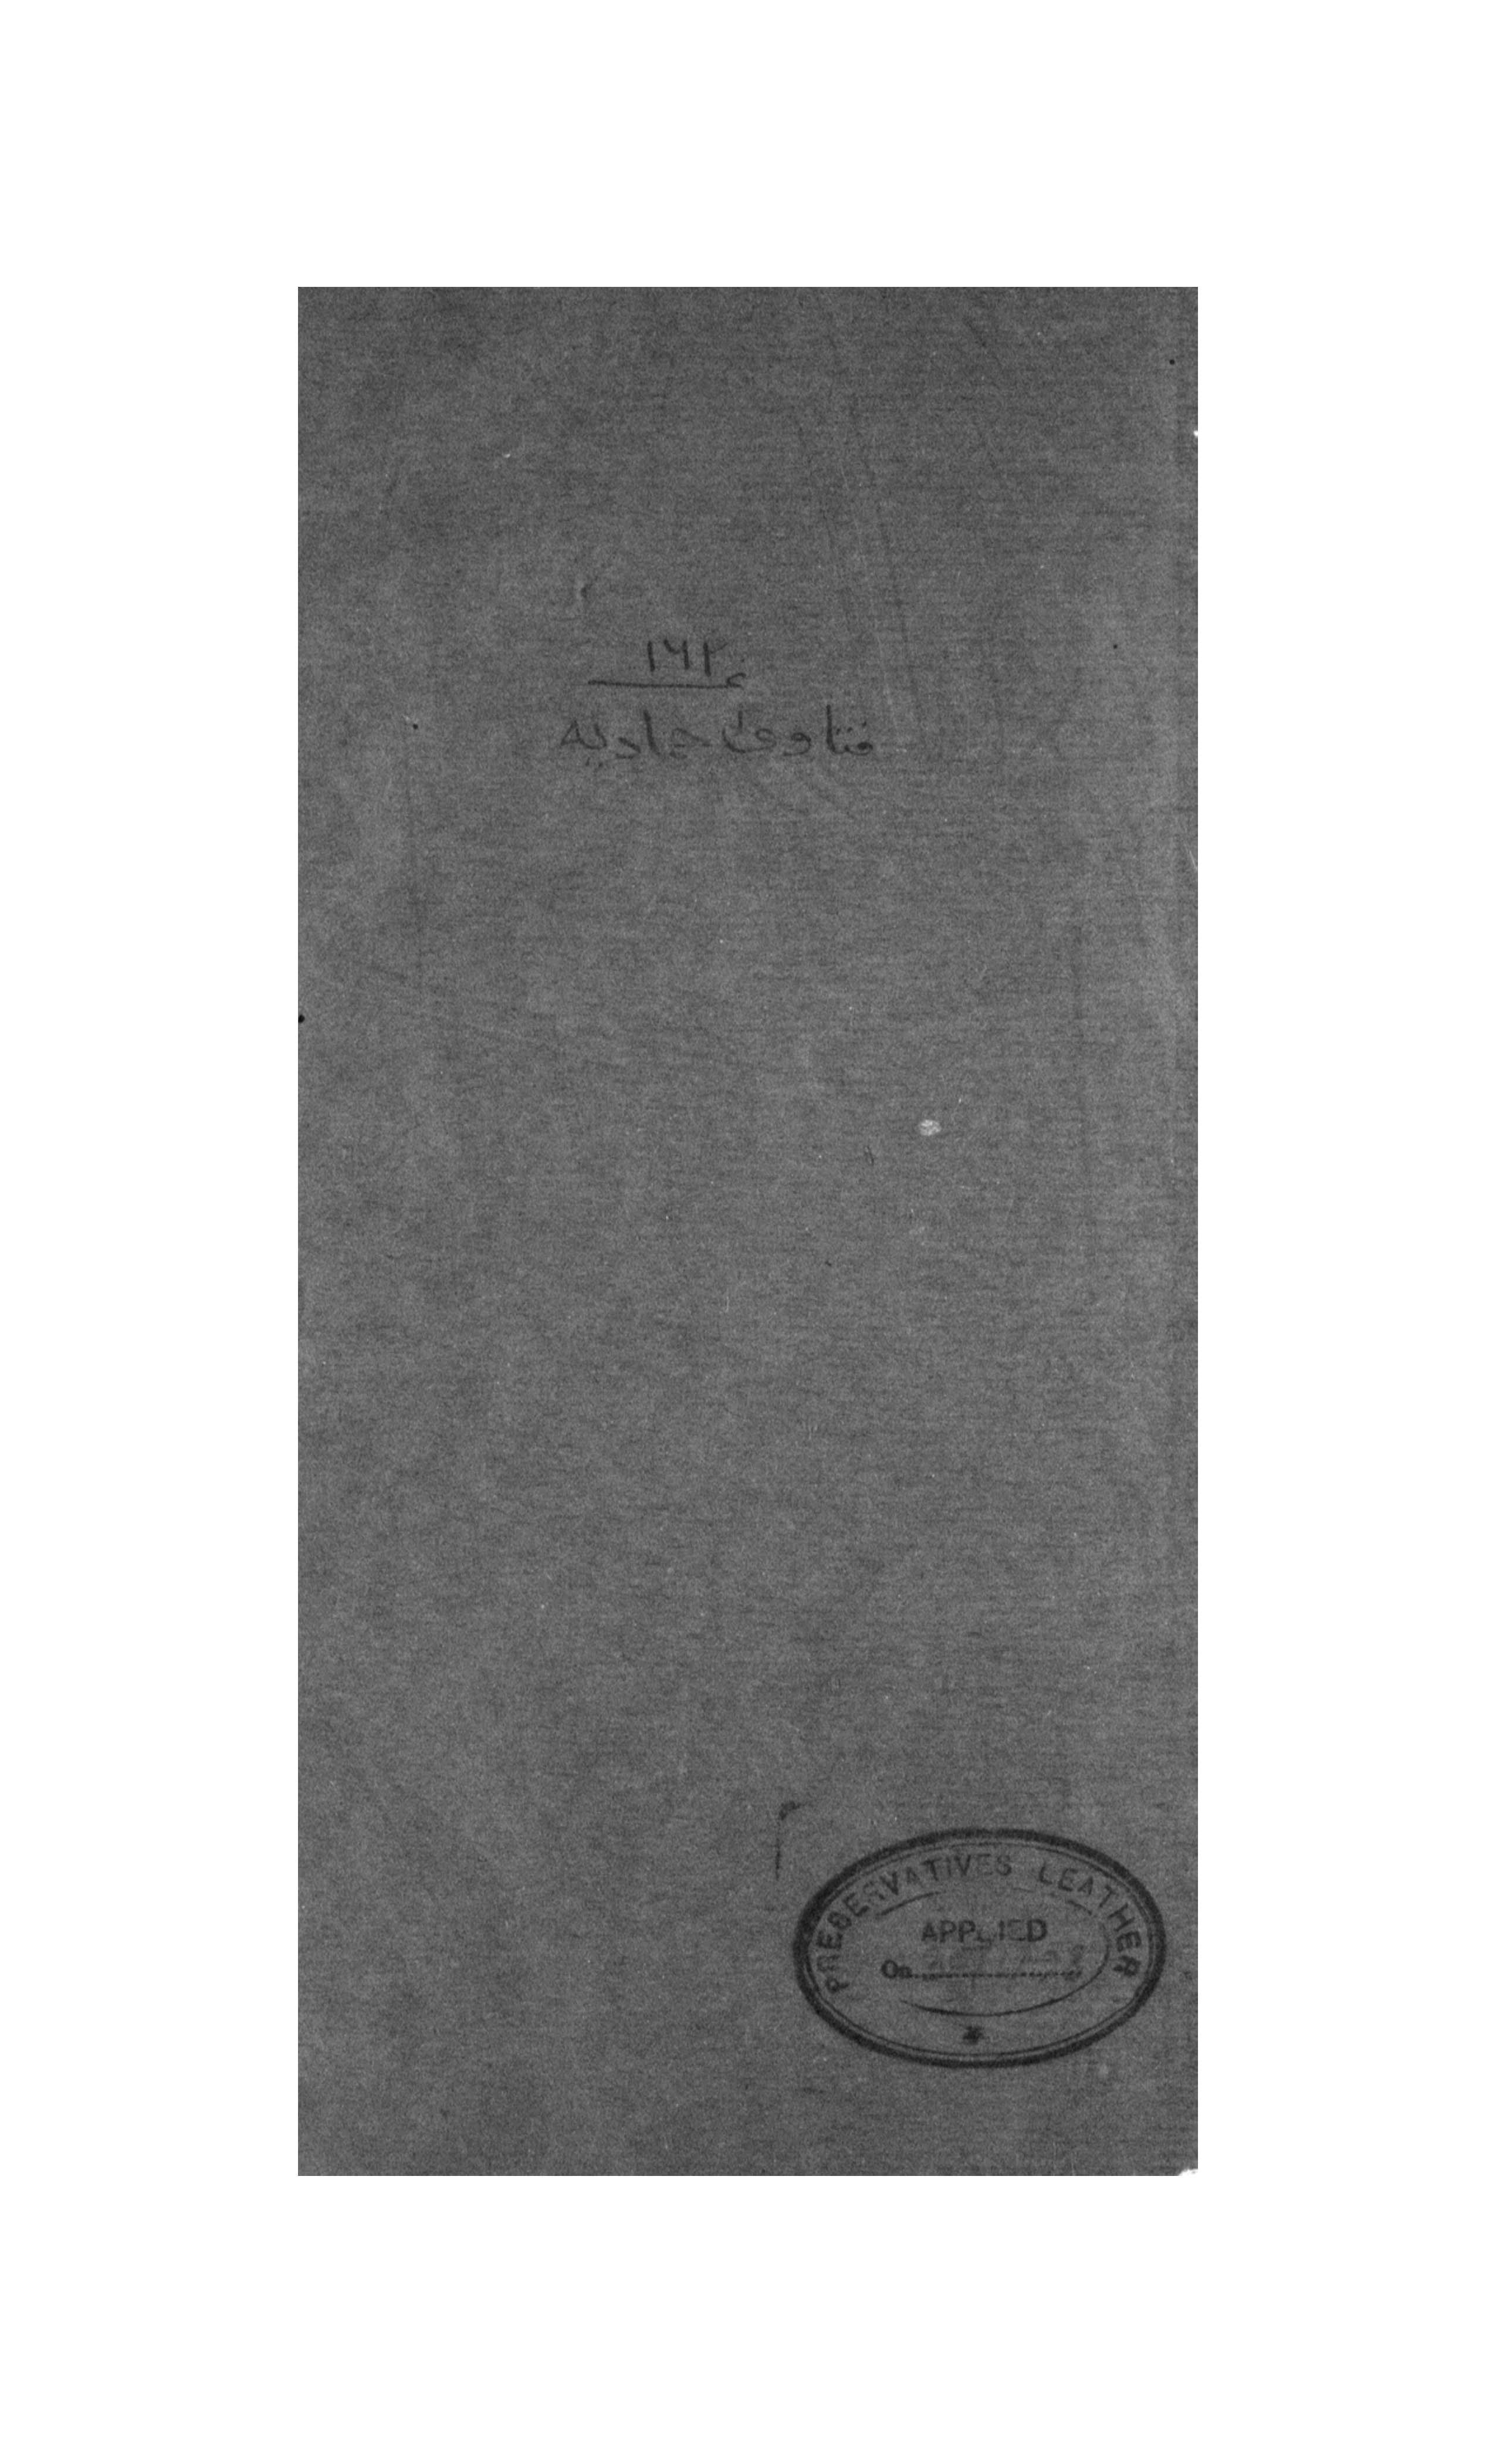 ١٦٢
فتاوی حمادیه
PRESERVATIVES LEATHER
APPLIED
On